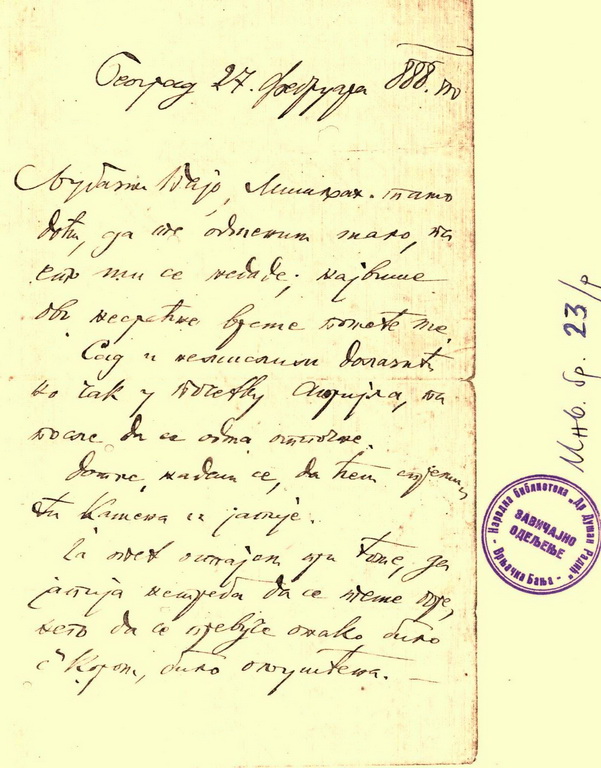 Београд 27. фебруара 888. го
Љубазни Пајо,
доћи, да те одменим мало, па
ето ми се недаде; највише
ово несрећно време помете ме.
Сад и немислим долазити
но чак у почетку Априла, па
после да се одма отпочне.
Дотле, надам се, да ћеш спремити
Камена и јапије.
Ја опет остајем при томе, да
јапија нетреба да се теше
него да се превуче онако било
с Кором, било опуштена. —
Инв. бр. 23/р
Народна библиотека „Др Душан Радић“
- Врњачка Бања -
ЗАВИЧАЈНО
ОДЕЉЕЊЕ